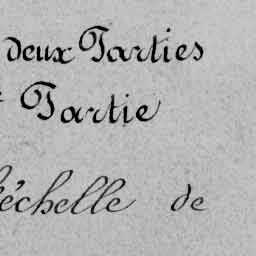 deux Parties
Partie
l'échelle de